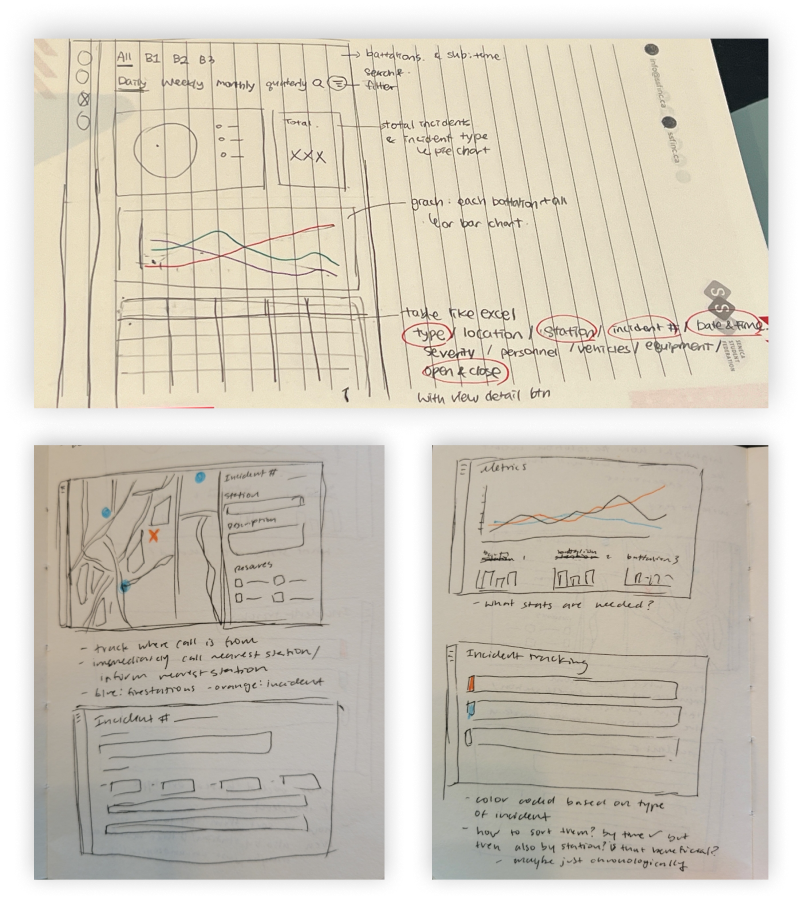 All B1 B2 B3
Daily Weekly monthly quarterly
Total
XXX
battalions. & sub: time
search &
filter
total incidents
& incident type
pie chart
graph: each battalion + all
or bar chart.
table like excel
type / location / station / incident # / Date & time
severity / personnel / vehicles / equipment /
open & close
with view detail btn
info@ssfinc.ca
ssfinc.ca
SENECA
STUDENT
FEDERATION
Incident #
Station
Description
- track where call is from
- immediately call nearest station /
inform nearest station
- blue: firestations - orange: incident
Incident #
Metrics
1
battalion 2
battalion 3
- what stats are needed?
Incident tracking
- color coded based on type
of incident
- how to sort them? by time ✓ but
then also by station? is that beneficial?
- maybe just chronologically